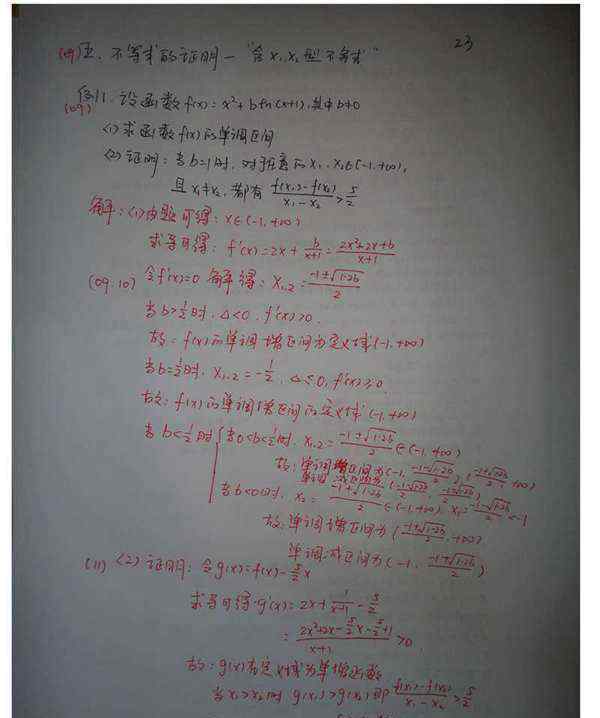 23
(09) 五、不等式的证明—“含x₁,x₂型不等式”
例1.设函数f(x)=x²+bln(x+1),其中b≠0
(09)
(1)求函数f(x)的单调区间
(2)证明:当b=1时,对任意的x₁,x₂∈(-1,+∞),
且x₁≠x₂,都有 (f(x₁)-f(x₂))/(x₁-x₂)>5/2
解:(1)由题可得:x∈(-1,+∞)
求导可得:f'(x)=2x+b/(x+1)=(2x²+2x+b)/(x+1)
(09.10) 令f'(x)=0 解得:x₁,₂=(-1±√(1-2b))/2
当b>1/2时,△<0,f'(x)>0.
故:f(x)的单调增区间为定义域(-1,+∞)
当b=1/2时,x₁,₂=-1/2,△≤0,f'(x)≥0
故:f(x)的单调增区间为定义域(-1,+∞)
当b<1/2时{当0<b<1/2时,x₁,₂=(-1±√(1-2b))/2∈(-1,+∞)
故:单调增区间为(-1,(-1-√(1-2b))/2),((-1+√(1-2b))/2,+∞)
单调减区间为((-1-√(1-2b))/2,(-1+√(1-2b))/2)
当b<0时,x₂=(-1+√(1-2b))/2∈(-1,+∞),x₁=(-1-√(1-2b))/2<-1
故:单调增区间为((-1+√(1-2b))/2,+∞)
单调减区间为(-1,(-1+√(1-2b))/2)
(11) (2)证明:令g(x)=f(x)-5/2x
求导可得:g'(x)=2x+1/(x+1)-5/2
=(2x²+2x-5/2x-5/2+1)/(x+1)>0
故:g(x)在定义域为单增函数
当x₁>x₂时 g(x₁)>g(x₂)即(f(x₁)-f(x₂))/(x₁-x₂)>5/2